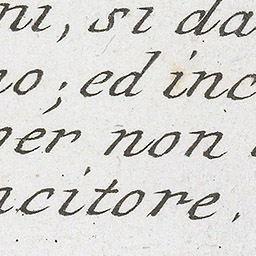 ni, si da
no; ed inc
ner non
ncitore.